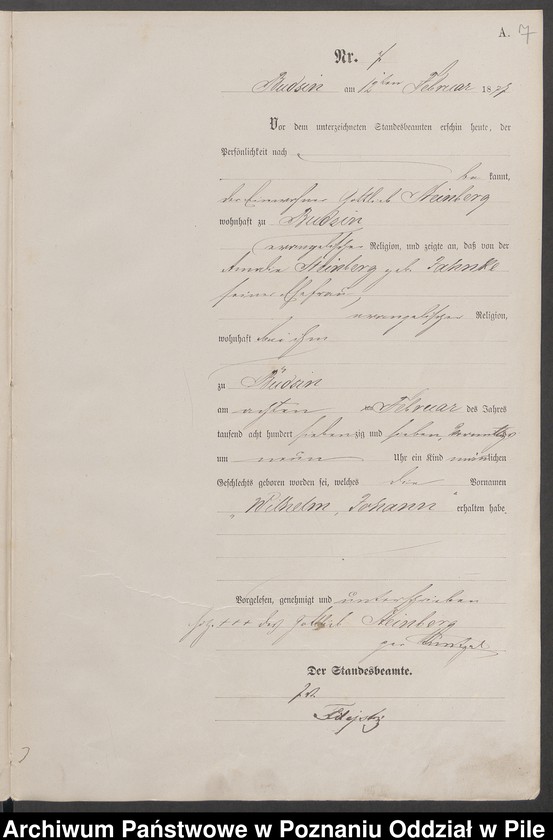 A. 7
Nr. 7
Budsin am 12ten Februar 1877
Vor dem unterzeichneten Standesbeamten erschien heute, der
Persönlichkeit nach
be kannt,
der Einwohner Gottlieb Steinberg
wohnhaft zu Budsin
evangelischer Religion, und zeigte an, daß von der
Amalie Steinberg geb. Jahnke
seiner Ehefrau,
evangelischer Religion,
wohnhaft bei ihm
zu Budsin
am achten Februar des Jahres
tausend acht hundert siebenzig und sieben, Vormittags
um neun Uhr ein Kind männlichen
Geschlechts geboren worden sei, welches die Vornamen
"Wilhelm, Johann" erhalten habe.
Vorgelesen, genehmigt und unterschrieben
+++ des Gottlieb Steinberg
Der Standesbeamte.
Archiwum Państwowe w Poznaniu Oddział w Pile